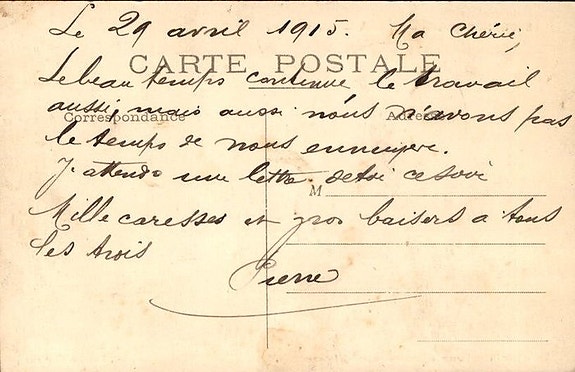 Le 29 avril 1915. Ma Chérie,
CARTE POSTALE
Le beau temps continue le travail
aussi, mais aussi nous n'avons pas
Correspondance Adresse
le temps de nous ennuyer.
J'attends une lettre de toi ce soir
M
Mille caresses et gros baisers a tous
les trois
Pierre